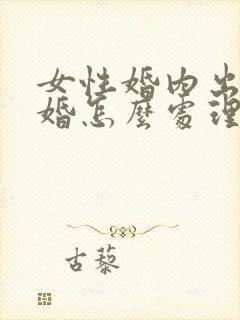 女性婚内出
婚怎麼處理
古藜